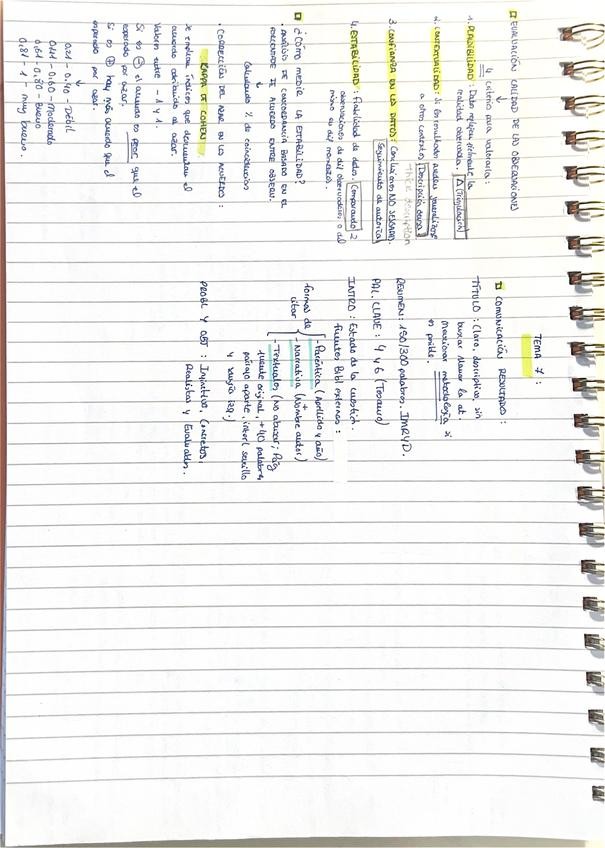 EVALUACIÓN CALIDAD DE LAS OBSERVACIONES
4 criterios para valorarla:
1. PLAUSIBILIDAD: Datos reflejan fielmente la
realidad observada. Δ (Triangulación)
2. CONTEXTUALIDAD: Si los resultados pueden generalizarse
a otros contextos. Descripción densa
thick description
3. CONFIANZA EN LOS DATOS: Conclusiones NO SESGADAS.
Seguimiento de autoría
4. ESTABILIDAD: Fiabilidad de datos. Comparando 2
observaciones de dif observadores o del
mismo en dif momentos.
¿CÓMO MEDIR LA ESTABILIDAD?
· ANÁLISIS DE CONCORDANCIA BASADO EN EL
PORCENTAJE DE ACUERDO ENTRE OBSERV.
Calculando % de coincidencias
· CORRECCIÓN DEL AZAR EN LOS ACUERDOS:
KAPPA DE COHEN.
Se utilizan índices que descuentan el
acuerdo atribuido al azar.
Valores entre -1 y 1.
Si es - el acuerdo es peor que el
esperado por azar.
Si es + hay más acuerdo que el
esperado por azar.
0,21 - 0,40 - Débil
0,41 - 0,60 - Moderado
0,61 - 0,80 - Bueno
0,81 - 1 - muy bueno.
TEMA 7:
COMUNICACIÓN RESULTADOS:
TÍTULO: Claro, descriptivo, sin
buscar llamar la at.
Mencionar metodología si
es posible.
RESUMEN: 150/300 palabras. IMRYD.
PAL. CLAVE: 4 y 6 (Tesauro)
INTRO: Estado de la cuestión.
Fuentes Bibl externas:
formas de
citar
- Paréntica (Apellido y año)
- Narrativa (Nombre autor)
- Textuales (No abusar; Pág
fuente original, +40 palabras
párrafo aparte, interl sencillo
y sangría izq.)
PROBL Y OBT: Infinitivo, Concretos,
Realistas y Evaluables.